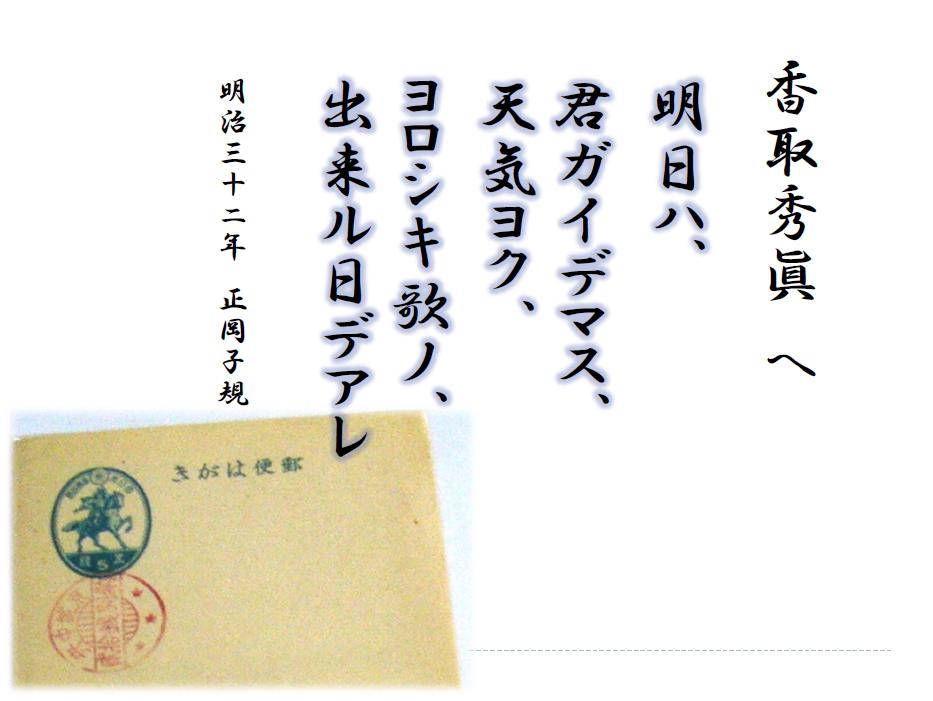 香取秀眞　へ
明日ハ、
君ガイデマス、
天気ヨク、
ヨロシキ歌ノ、
出来ル日デアレ
明治三十二年　正岡子規
きがは便郵
5